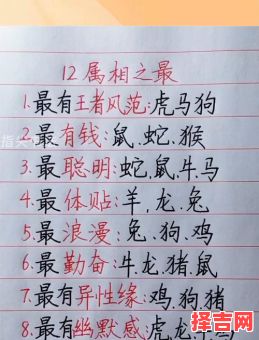 12属相之最
1.最有王者风范:虎马狗
2.最有钱:鼠、蛇、猴
3.最聪明:蛇,鼠,牛马
4.最体贴:羊,龙、兔
5.最浪漫:兔、狗、鸡
6.最勤奋:牛,龙,猪,鼠
7.最有异性缘:鸡.狗猪
8.最有幽默感:虎龙
择吉网